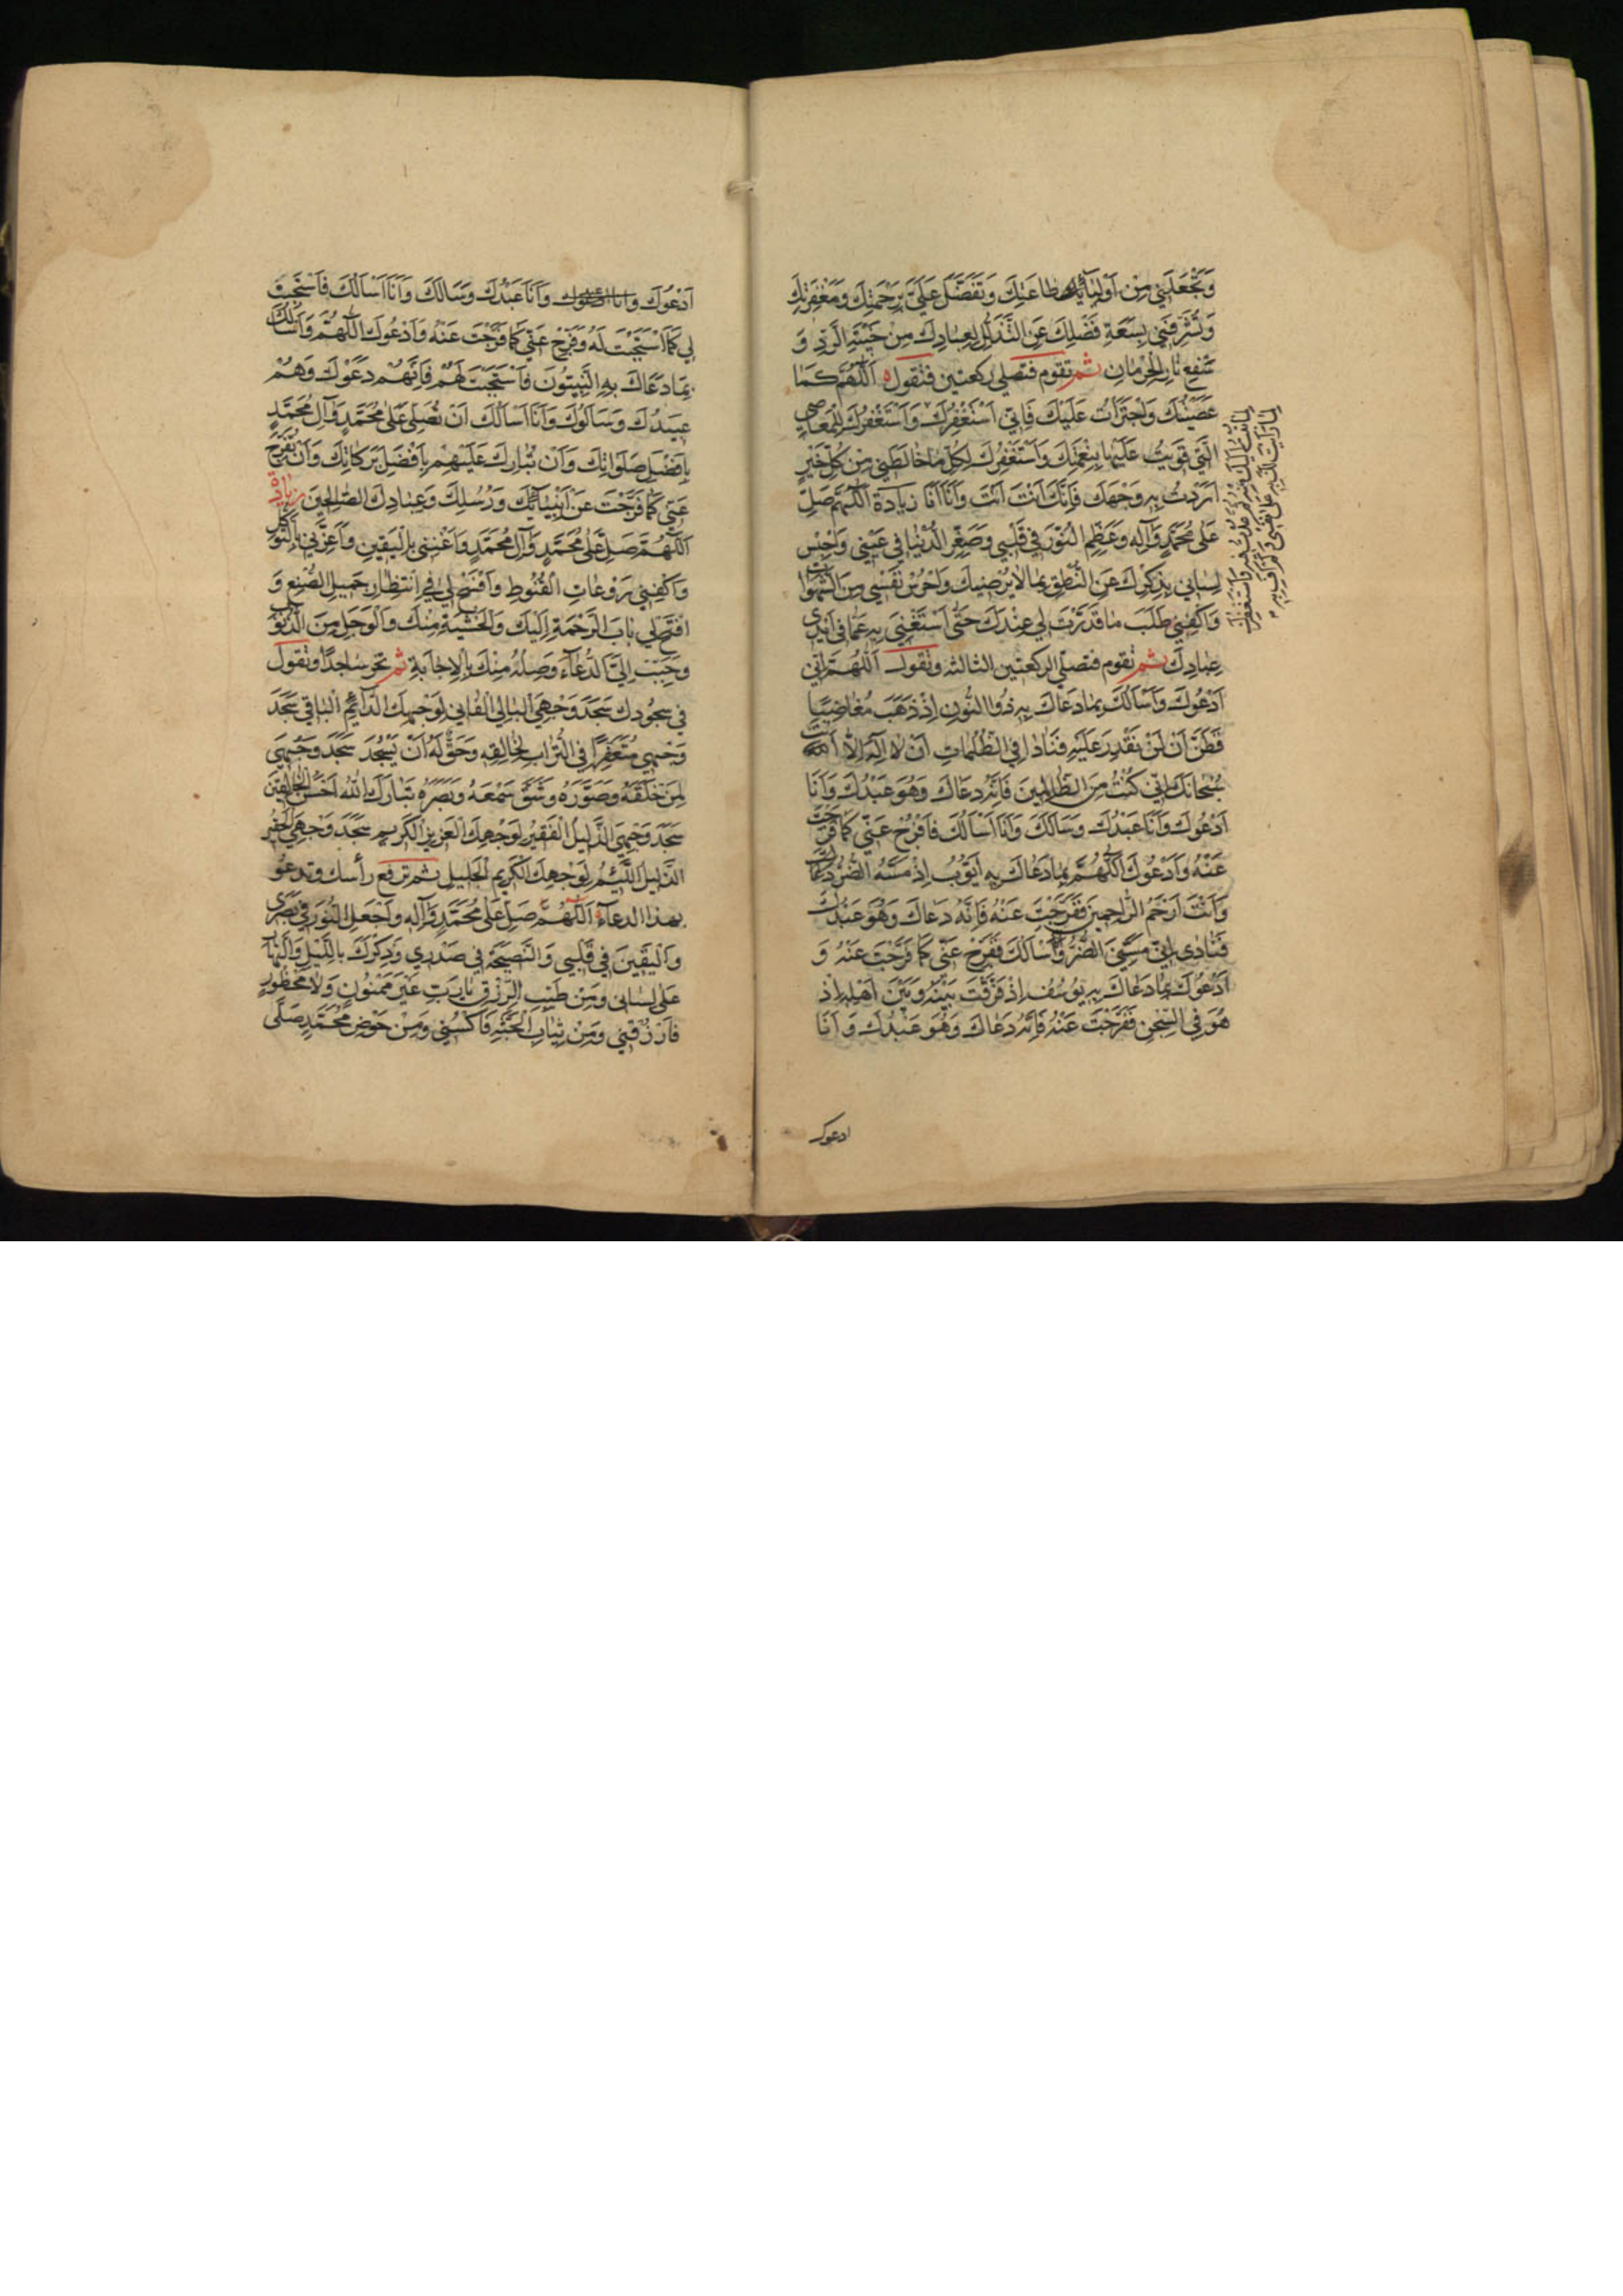 وَتَجْعَلَنِي مِنْ اَوْلِيَائِكَ طَاعَتِكَ وَتَفَضَّلَ عَلَيَّ بِرَحْمَتِكَ وَمَغْفِرَتِكَ
وَتُشَرِّفَنِي بِسَعَةِ فَضْلِكَ عَنِ التَّذَلُّلِ لِعِبَادِكَ مِنْ خَيْبَةِ الرَّدِّ وَ
نَارِ الْحِرْمَانِ ثم تقوم فتصلي ركعتين فتقول اَللّٰهُمَّ كَمَا
عَصَيْتُكَ وَاجْتَرَأْتُ عَلَيْكَ فَاِنِّي اَسْتَغْفِرُكَ وَاَسْتَغْفِرُكَ لِلْمَعَاصِي
الَّتِي قَوِيتُ عَلَيْهَا بِنِعْمَتِكَ وَاَسْتَغْفِرُكَ لِكُلِّ مَا خَالَطَنِي مِنْ كُلِّ خَيْرٍ
اَرَدْتُ بِهِ وَجْهَكَ فَاِنَّكَ اَنْتَ اَنْتَ وَاَنَا اَنَا زيادة اَللّٰهُمَّ صَلِّ
عَلَى مُحَمَّدٍ وَآلِهِ وَعَظِّمِ النُّورَ فِي قَلْبِي وَصَغِّرِ الدُّنْيَا فِي عَيْنِي وَاحْبِسْ
لِسَانِي بِذِكْرِكَ عَنِ النُّطْقِ بِمَا لَا يُرْضِيكَ وَاحْرُسْ نَفْسِي مِنَ الشَّهَوَاتِ
وَاكْفِنِي طَلَبَ مَا قَدَّرْتَ لِي عِنْدَكَ حَتَّى اَسْتَغْنِيَ بِهِ عَمَّا فِي اَيْدِي
عِبَادِكَ ثم تقوم فتصلي الركعتين الثالثة وتقول اَللّٰهُمَّ اِنِّي
اَدْعُوكَ وَاَسْاَلُكَ بِمَا دَعَاكَ بِهِ ذُو النُّونِ اِذْ ذَهَبَ مُغَاضِبًا
فَظَنَّ اَنْ لَنْ نَقْدِرَ عَلَيْهِ فَنَادَا فِي الظُّلُمَاتِ اَنْ لَا اِلٰهَ اِلَّا اَنْتَ
سُبْحَانَكَ اِنِّي كُنْتُ مِنَ الظَّالِمِينَ فَاِنَّهُ دَعَاكَ وَهُوَ عَبْدُكَ وَاَنَا
اَدْعُوكَ وَاَنَا عَبْدُكَ وَسَاَلَكَ وَاَنَا اَسْاَلُكَ فَافْرُجْ عَنِّي كَمَا فَرَّجْتَ
عَنْهُ وَاَدْعُوكَ اَللّٰهُمَّ بِمَا دَعَاكَ بِهِ اَيُّوبُ اِذْ مَسَّهُ الضُّرُّ
فَنَادٰى اِنِّي مَسَّنِيَ الضُّرُّ وَاَنْتَ اَرْحَمُ الرَّاحِمِينَ فَفَرَّجْتَ عَنْهُ فَاِنَّهُ دَعَاكَ وَهُوَ عَبْدُكَ
وَاَسْاَلُكَ فَفَرِّجْ عَنِّي كَمَا فَرَّجْتَ عَنْهُ وَ
اَدْعُوكَ بِمَا دَعَاكَ بِهِ يُوسُفُ اِذْ فَرَّقْتَ بَيْنَهُ وَبَيْنَ اَهْلِهِ اِذْ
هُوَ فِي السِّجْنِ فَفَرَّجْتَ عَنْهُ فَاِنَّهُ دَعَاكَ وَهُوَ عَبْدُكَ وَاَنَا
ادعوك
اَدْعُوكَ وَاَنَا عَبْدُكَ وَسَاَلَكَ وَاَنَا اَسْاَلُكَ فَاسْتَجِبْ
لِي كَمَا اسْتَجَبْتَ لَهُ وَفَرِّجْ عَنِّي كَمَا فَرَّجْتَ عَنْهُ وَاَدْعُوكَ اللّٰهُمَّ وَاَسْاَلُكَ
بِمَا دَعَاكَ بِهِ النَّبِيُّونَ فَاسْتَجَبْتَ لَهُمْ فَاِنَّهُمْ دَعَوْكَ وَهُمْ
عَبِيدُكَ وَسَاَلُوكَ وَاَنَا اَسْاَلُكَ اَنْ تُصَلِّيَ عَلَى مُحَمَّدٍ وَآلِ مُحَمَّدٍ
بِاَفْضَلِ صَلَوَاتِكَ وَاَنْ تُبَارِكَ عَلَيْهِمْ بِاَفْضَلِ بَرَكَاتِكَ وَاَنْ تُفَرِّجَ
عَنِّي كَمَا فَرَّجْتَ عَنْ اَنْبِيَائِكَ وَرُسُلِكَ وَعِبَادِكَ الصَّالِحِينَ زيادة
اَللّٰهُمَّ صَلِّ عَلَى مُحَمَّدٍ وَآلِ مُحَمَّدٍ وَاَغْنِنِي بِالْيَقِينِ وَاَعِزَّنِي بِالتَّوَكُّلِ
وَاكْفِنِي رَوْعَاتِ الْقُنُوطِ وَافْسَحْ لِي فِي انْتِظَارِ جَمِيلِ الصُّنْعِ وَ
افْتَحْ لِي بَابَ الرَّحْمَةِ اِلَيْكَ وَالْخَشْيَةِ مِنْكَ وَالْوَجَلِ مِنَ الذُّنُوبِ
وَحَبِّبْ اِلَيَّ الدُّعَاءَ وَصِلْهُ مِنْكَ بِالْاِجَابَةِ ثم تخر ساجدا وتقول
في سجودك سَجَدَ وَجْهِيَ الْبَالِي الْفَانِي لِوَجْهِكَ الدَّائِمِ الْبَاقِي سَجَدَ
وَجْهِي مُتَعَفِّرًا فِي التُّرَابِ لِخَالِقِهِ وَحَقٌّ لَهُ اَنْ يَسْجُدَ سَجَدَ وَجْهِي
لِمَنْ خَلَقَهُ وَصَوَّرَهُ وَشَقَّ سَمْعَهُ وَبَصَرَهُ تَبَارَكَ اللّٰهُ اَحْسَنُ الْخَالِقِينَ
سَجَدَ وَجْهِيَ الذَّلِيلُ الْفَقِيرُ لِوَجْهِكَ الْعَزِيزِ الْكَرِيمِ سَجَدَ وَجْهِيَ الْحَقِيرُ
الذَّلِيلُ اللَّئِيمُ لِوَجْهِكَ الْكَرِيمِ الْجَلِيلِ ثم ترفع رأسك وتدعو
بهذا الدعاء اَللّٰهُمَّ صَلِّ عَلَى مُحَمَّدٍ وَآلِهِ وَاجْعَلِ النُّورَ فِي بَصَرِي
وَالْيَقِينَ فِي قَلْبِي وَالنَّصِيحَةَ فِي صَدْرِي وَذِكْرَكَ بِاللَّيْلِ وَالنَّهَارِ
عَلَى لِسَانِي وَمِنْ طَيِّبِ الرِّزْقِ يَا رَبِّ غَيْرَ مَمْنُونٍ وَلَا مَحْظُورٍ
فَارْزُقْنِي وَمِنْ ثِيَابِ الْجَنَّةِ فَاكْسُنِي وَمِنْ حَوْضِ مُحَمَّدٍ صَلَّى